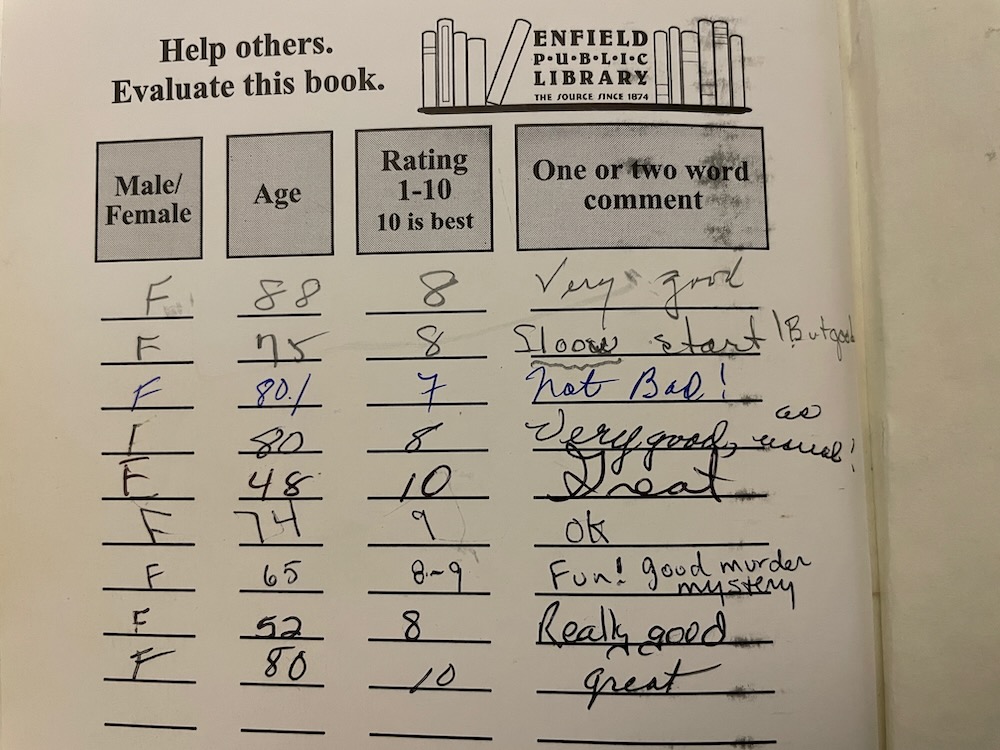 Help others.
Evaluate this book.
ENFIELD
P•U•B•L•I•C
LIBRARY
THE SOURCE SINCE 1874
Male/
Female
Age
Rating
1-10
10 is best
One or two word
comment
F 88 8 Very good
F 75 8 Sloow start! But good
F 80! 7 Not Bad!
F 80 8 Very good, as usual!
F 48 10 Great
F 74 9 ok
F 65 8-9 Fun! good murder mystery
F 52 8 Really good
F 80 10 great